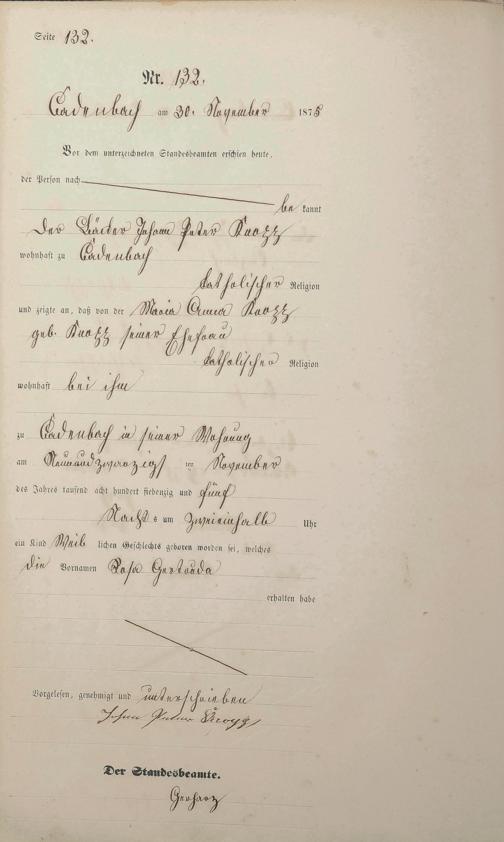 Seite 132.
Nr. 132.
Cadenbach am 30. November 1875
Vor dem unterzeichneten Standesbeamten erschien heute,
der Person nach
be kannt
der Johann Peter Knopp
wohnhaft zu Cadenbach
katholischer Religion
und zeigte an, daß von der Maria Anna Knopp
geb. Knopp seiner Ehefrau
katholischer Religion
wohnhaft bei ihm
zu Cadenbach in seiner Wohnung
am Neunundzwanzigsten November
des Jahres tausend acht hundert siebenzig und fünf
Nachts um zweieinhalb Uhr
ein Kind Weib lichen Geschlechts geboren worden sei, welches
die Vornamen Rosa Gertruda
erhalten habe
Vorgelesen, genehmigt und unterschrieben
Johan Peter Knopp
Der Standesbeamte.
Gerharz